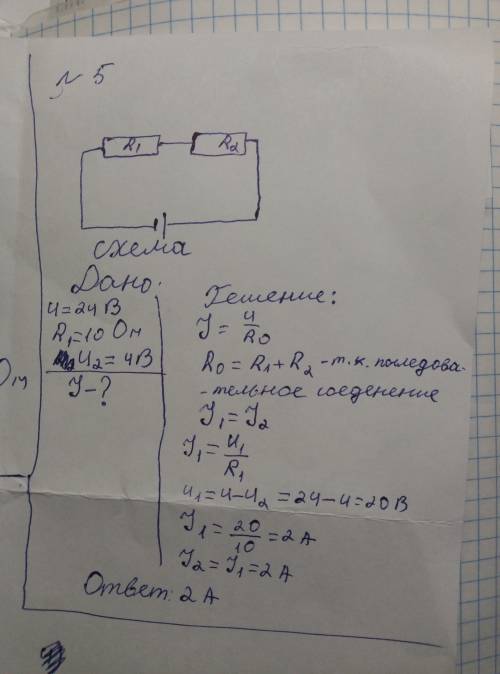 № 5
R₁ R₂
схема
Дано:
U = 24 В
R₁ = 10 Ом
U₂ = 4 В
J - ?
Решение:
J = U/R₀
R₀ = R₁ + R₂ - т.к. последова-
-тельное соеденение
J₁ = J₂
J₁ = U₁/R₁
U₁ = U - U₂ = 24 - 4 = 20 В
J₁ = 20/10 = 2 А
J₂ = J₁ = 2 А
Ответ: 2 А
Ом